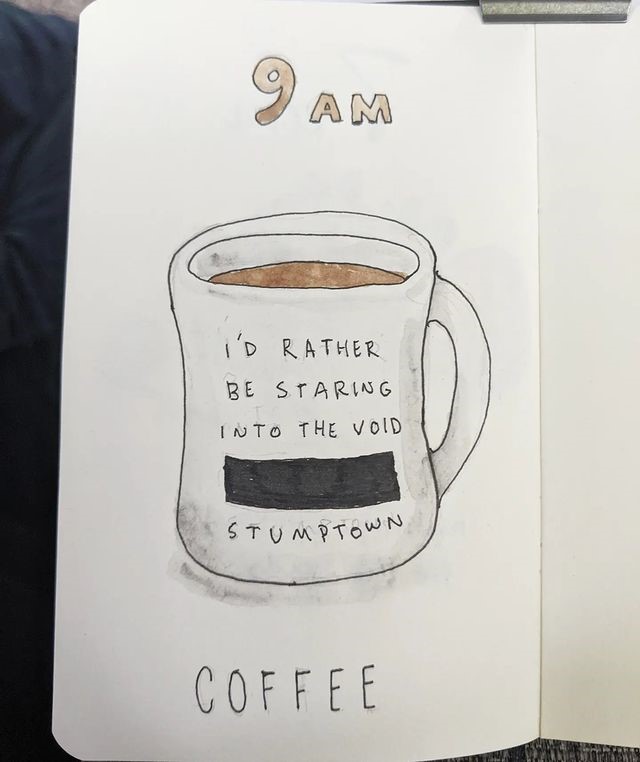 9 AM
I'D RATHER
BE STARING
INTO THE VOID
STUMPTOWN
COFFEE